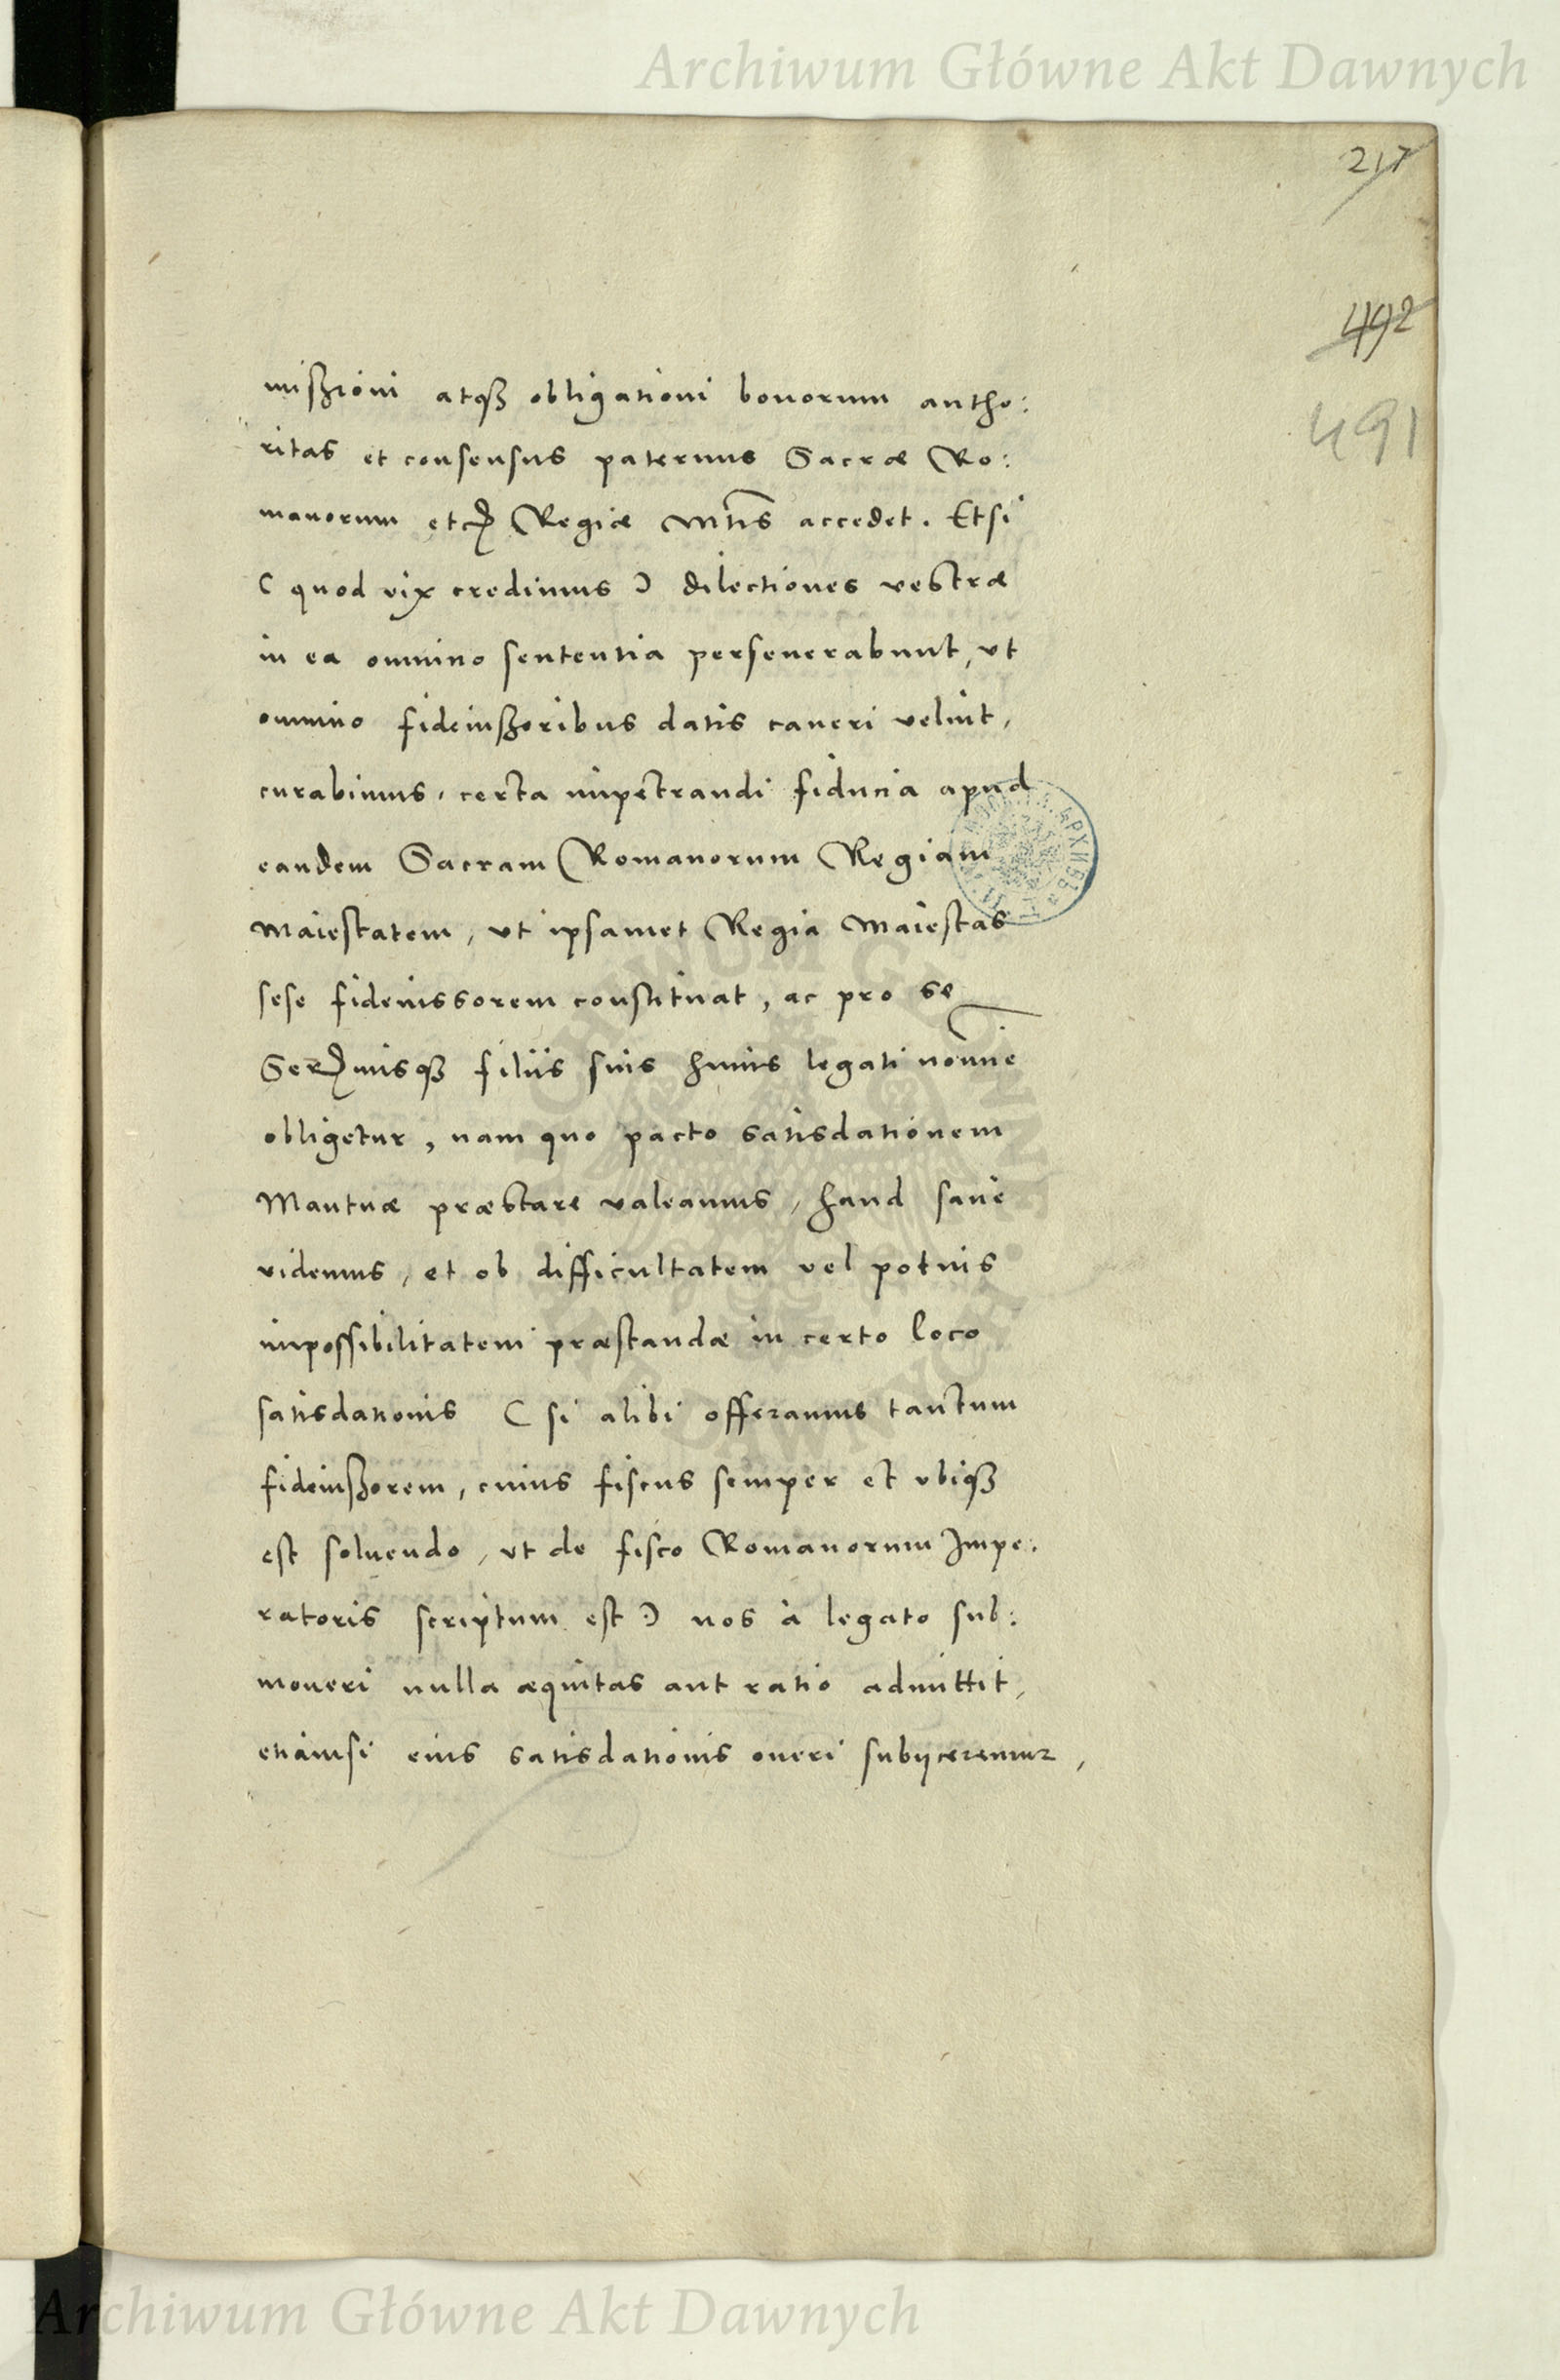 Archiwum Główne Akt Dawnych
217
492
491
mißioni atqȝ obligationi bonorum autho:
ritas et consensus paternus Sacræ Ro:
manorum etc Regiæ Mtis accedet. Etsi
( quod vix credimus ) dilectiones vestræ
in ea omnino sententia perseuerabunt, vt
omnino fideiußoribus datis caueri velint,
curabimus, certa impetrandi fiducia apud
eandem Sacram Romanorum Regiam
Maiestatem, vt ipsamet Regia Maiestas
sese fideiussorem constituat, ac pro se
Sermisqȝ filiis suis huius legati nomine
obligetur, nam quo pacto satisdationem
Mantuæ præstare valeamus, haud sane
videmus, et ob difficultatem vel potius
impossibilitatem præstandæ in certo loco
satisdationis ( si alibi offeramus tantum
fideiußorem, cuius fiscus semper et vbiqȝ
est soluendo, vt de fisco Romanorum Impe:
ratoris scriptum est ) nos à legato sub:
moueri nulla æquitas aut ratio admittit,
etiamsi eius satisdationis oneri subijceremur,
Archiwum Główne Akt Dawnych